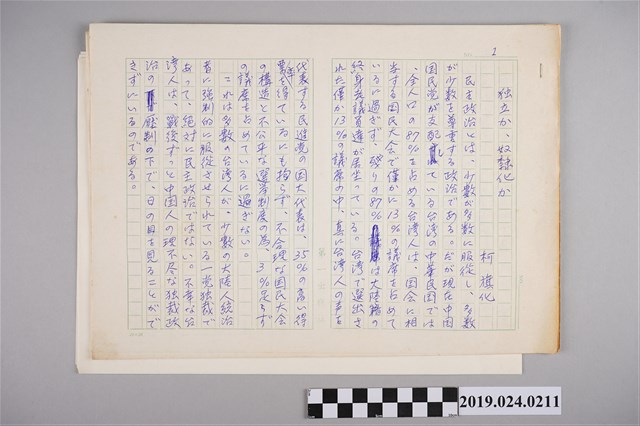 1
独立か、奴隷化か
柯旗化
民主政治とは、少数が多数に服従し、多数
が少数を尊重する政治である。だが現在中国
国民党が支配している台湾の中華民国では
全人口の87%を占める台湾人は、国会に相
当する国民大会で僅かに13%の議席を占めて
いるに過ぎず、残りの87%は大陸籍の
終身表議員達が居坐っている。台湾で選出さ
れた僅か13%の議席の中、真に台湾人の声を
代表する民進党の国大代表は、35%の高い得
票率を得ているにも拘らず、不合理な国民大会
の構造と不公平な選挙制度の為、3%足らず
の議席を占めているに過ぎない。
これは多数の台湾人が、少数の大陸人統治
者に強制的に服従させられている一党独裁で
あって、絶対に民主政治ではない。不幸な台
湾人は、戦後ずっと中国人の理不尽な独裁政
治の圧制の下で、日の目を見ることがで
きずにいるのである。
2019.024.0211